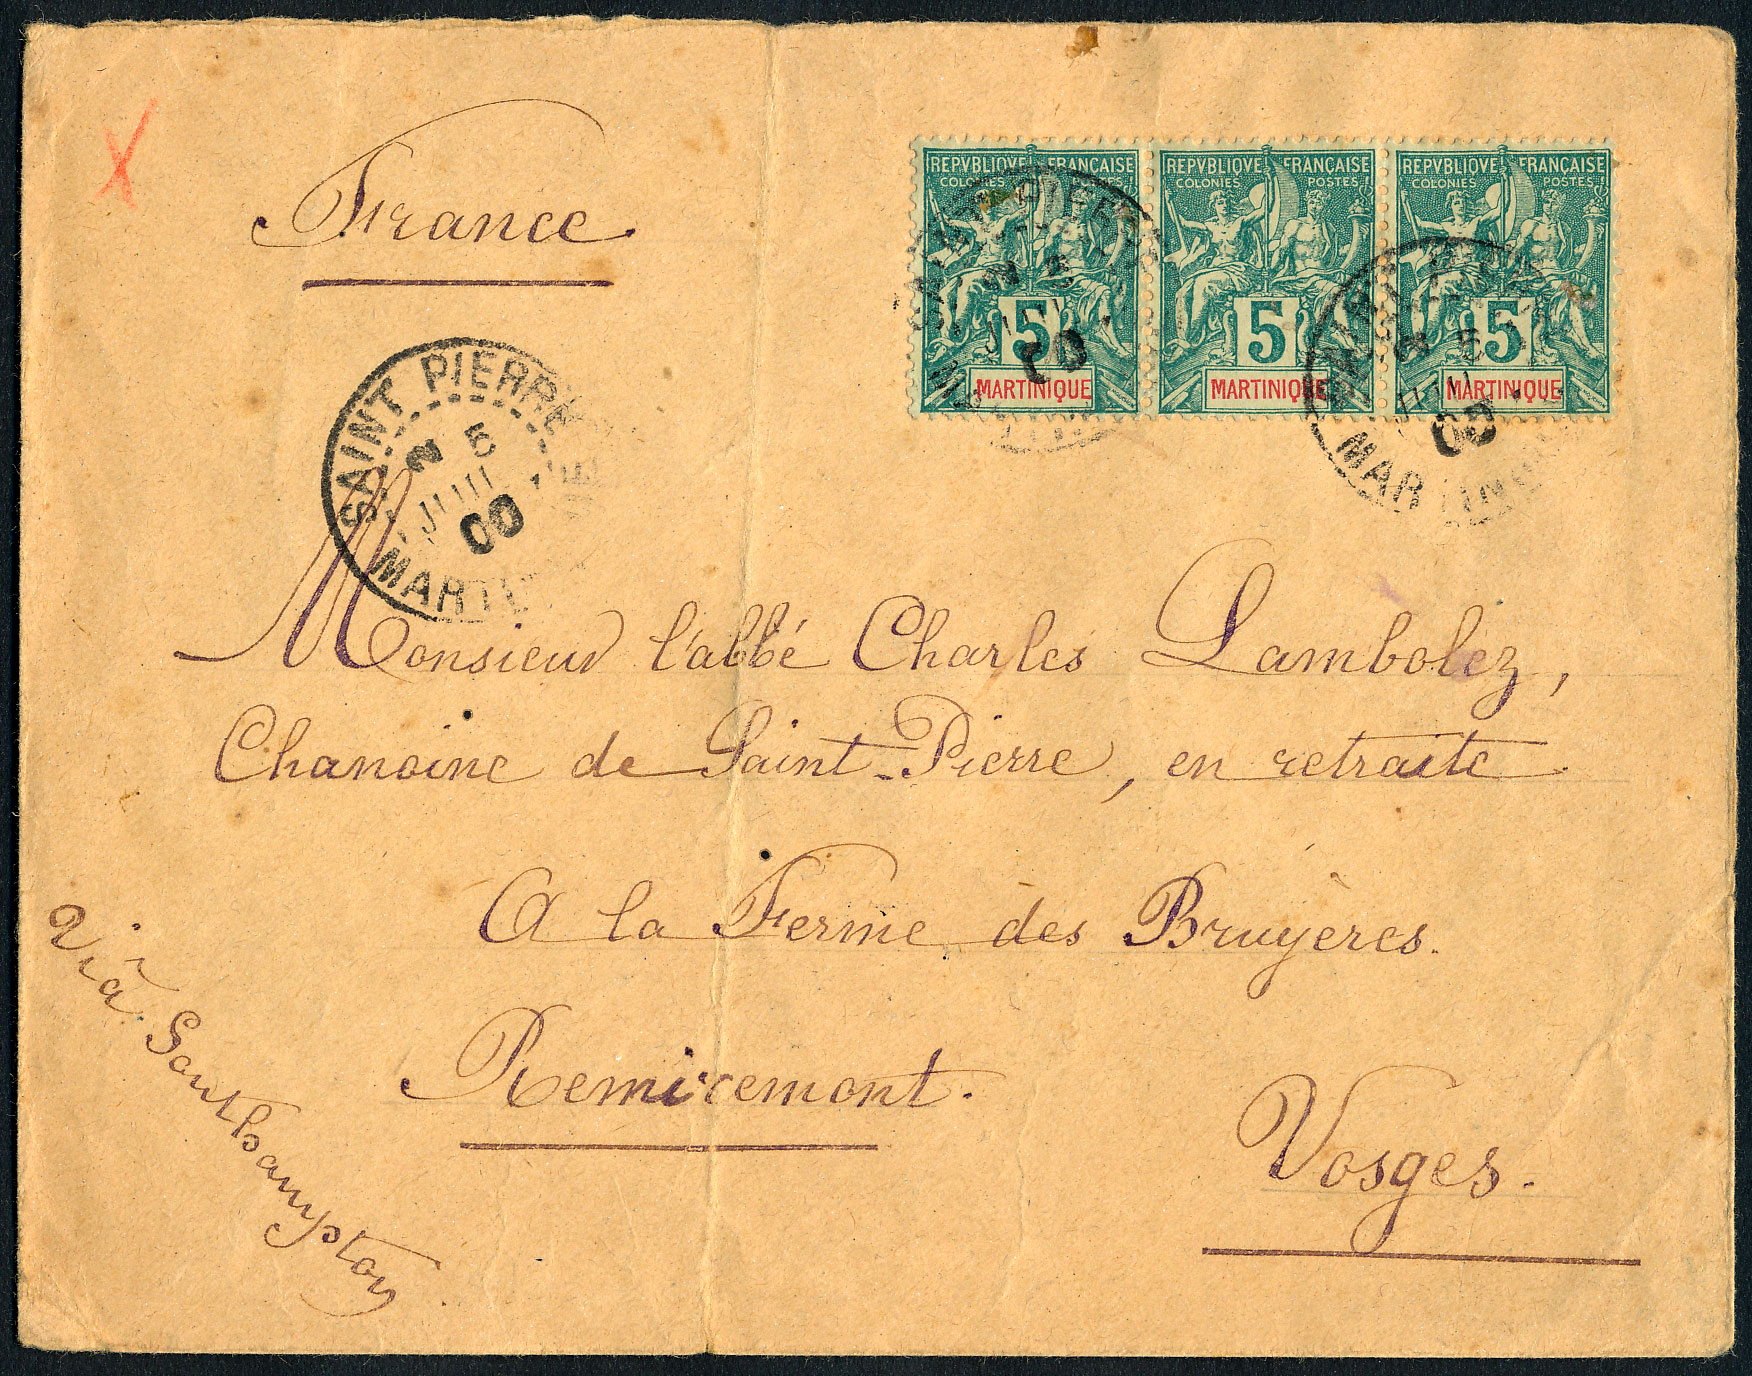 France.
REPVBLIQVE FRANÇAISE
COLONIES POSTES
5
MARTINIQUE
REPVBLIQVE FRANÇAISE
COLONIES POSTES
5
MARTINIQUE
REPVBLIQVE FRANÇAISE
COLONIES POSTES
5
MARTINIQUE
SAINT PIERRE
2 5
JUIL
00
MARTINIQUE
SAINT PIERRE
2 5
00
SAINT PIERRE
2 5
00
MARTINIQUE
Monsieur l'abbé Charles Lambolez,
Chanoine de Saint-Pierre, en retraite
A la Ferme des Bruyères.
Remiremont.
Vosges.
Viâ Southampton